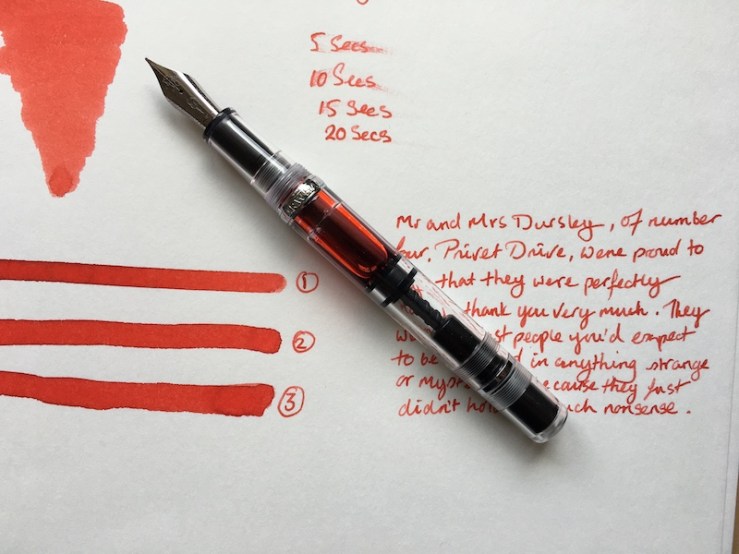 5 Secs
10 Secs
15 Secs
20 Secs
Mr and Mrs Dursley, of number
Privet Drive, were proud to
that they were perfectly
thank you very much. They
people you'd expect
to be in anything strange
or because they just
didn't nonsense.
1
2
3